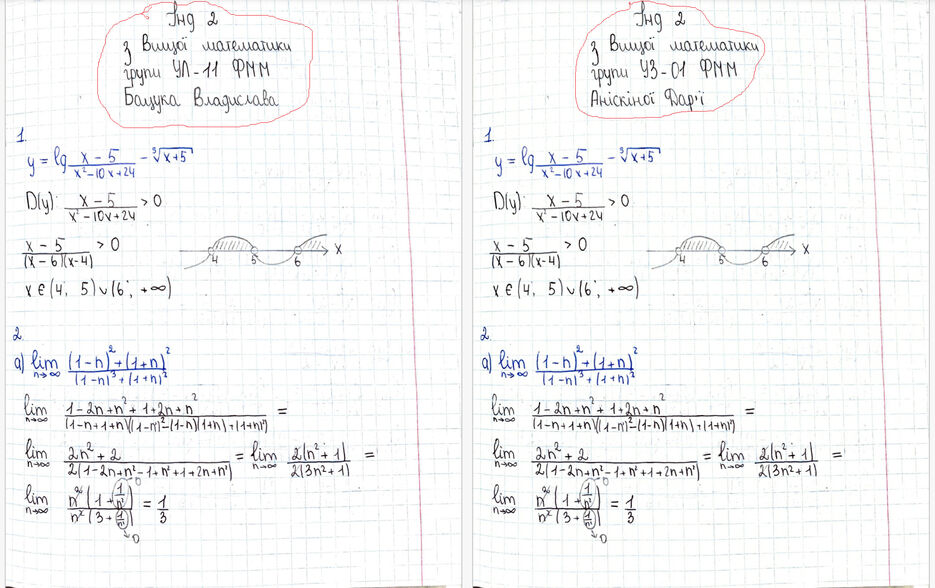 Інд 2
з Вищої математики
групи УЛ-11 ФММ
Бацука Владислава
1.
y = lg (x - 5)/(x² - 10x + 24) - ³√(x+5)
D(y): (x - 5)/(x² - 10x + 24) > 0
(x - 5)/((x - 6)(x - 4)) > 0
4 5 6 x
x ∈ (4; 5) ∪ (6; +∞)
2.
а) lim n→∞ ((1-n)² + (1+n)²)/((1-n)³ + (1+n)²)
lim n→∞ (1 - 2n + n² + 1 + 2n + n²)/((1-n+1+n)((1-n)² - (1-n)(1+n) + (1+n)²)) =
lim n→∞ (2n² + 2)/(2(1 - 2n + n² - 1 + n² + 1 + 2n + n²)) = lim n→∞ 2(n² + 1)/2(3n² + 1) =
lim n→∞ n²(1 + 1/n²)/n²(3 + 1/n²) = 1/3
→0
→0
Інд 2
з Вищої математики
групи УЗ-01 ФММ
Аніскіної Дар'ї
1.
y = lg (x - 5)/(x² - 10x + 24) - ³√(x+5)
D(y): (x - 5)/(x² - 10x + 24) > 0
(x - 5)/((x - 6)(x - 4)) > 0
4 5 6 x
x ∈ (4; 5) ∪ (6; +∞)
2.
а) lim n→∞ ((1-n)² + (1+n)²)/((1-n)³ + (1+n)²)
lim n→∞ (1 - 2n + n² + 1 + 2n + n²)/((1-n+1+n)((1-n)² - (1-n)(1+n) + (1+n)²)) =
lim n→∞ (2n² + 2)/(2(1 - 2n + n² - 1 + n² + 1 + 2n + n²)) = lim n→∞ 2(n² + 1)/2(3n² + 1) =
lim n→∞ n²(1 + 1/n²)/n²(3 + 1/n²) = 1/3
→0
→0